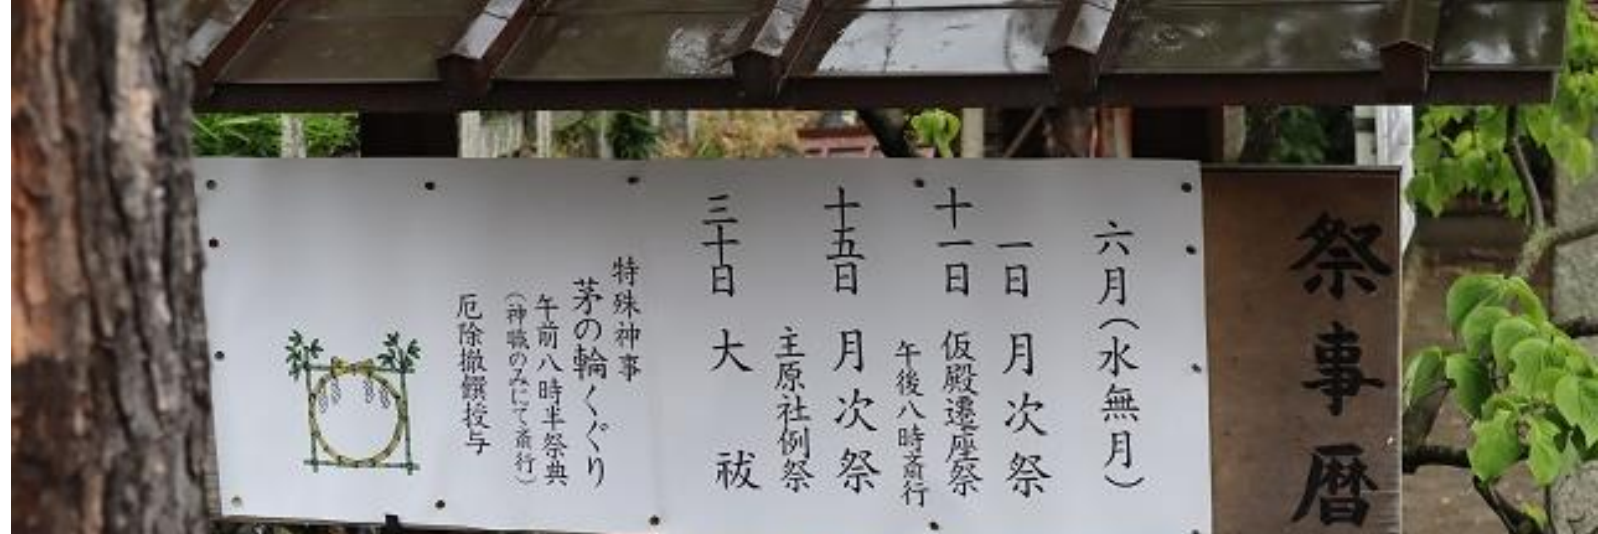 祭事暦
六月(水無月)
一日 月次祭
十一日 仮殿遷座祭
午後八時斎行
十五日 月次祭
主原社例祭
三十日 大祓
特殊神事
茅の輪くぐり
午前八時半祭典
(神職のみにて斎行)
厄除撤饌授与